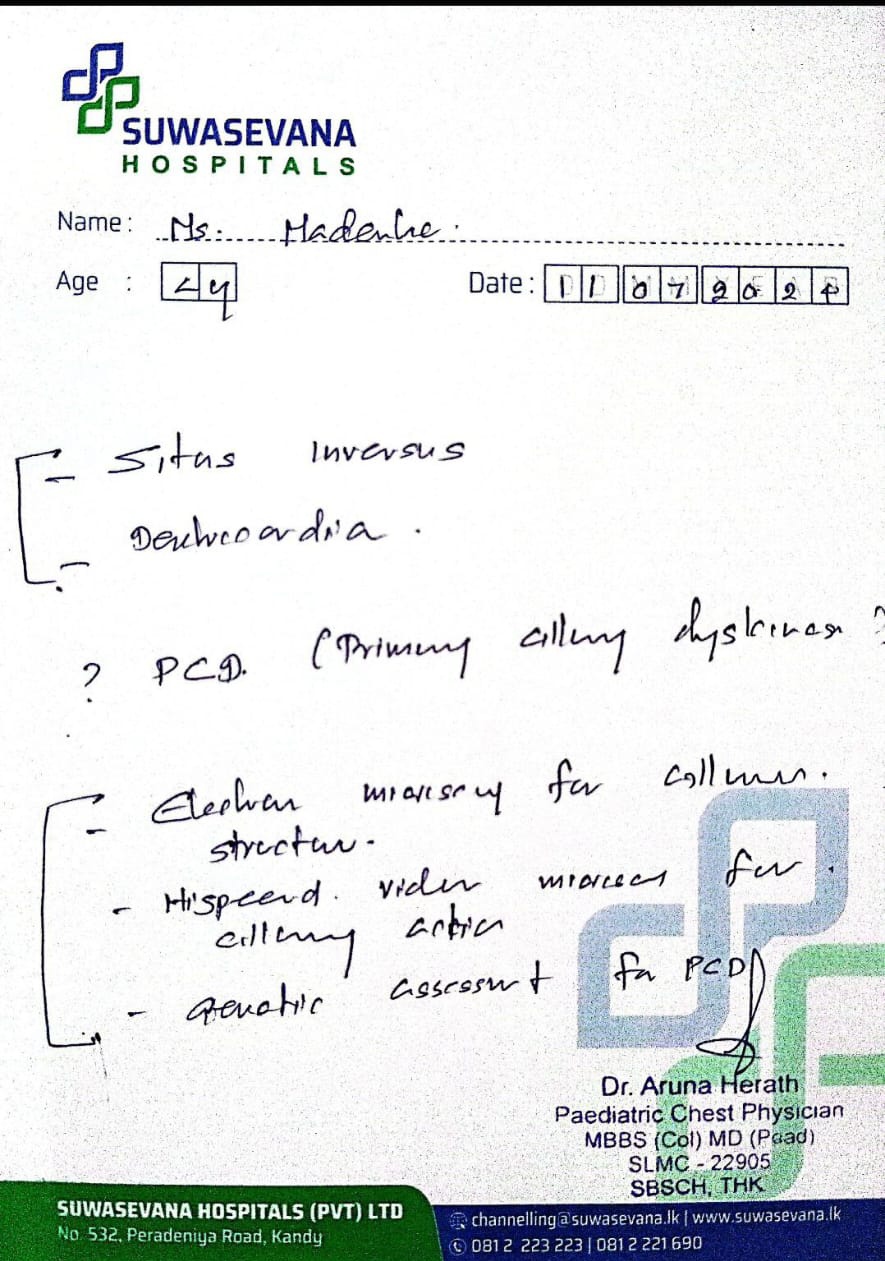 SUWASEVANA
HOSPITALS
Name: Ms.
Age :
Date: 11 07 2024
- Situs Inversus
- Dextrocardia.
? PCD. (Primary ciliary dyskinesia ?
- Electron microscopy for
structure.
- Hispeed. video for
ciliary action
- genetic assessment for PCD
Dr. Aruna Herath
Paediatric Chest Physician
MBBS (Col) MD (Paad)
SLMC - 22905
SBSCH, THK
SUWASEVANA HOSPITALS (PVT) LTD
No. 532, Peradeniya Road, Kandy
channelling@suwasevana.lk | www.suwasevana.lk
081 2 223 223 | 081 2 221 690